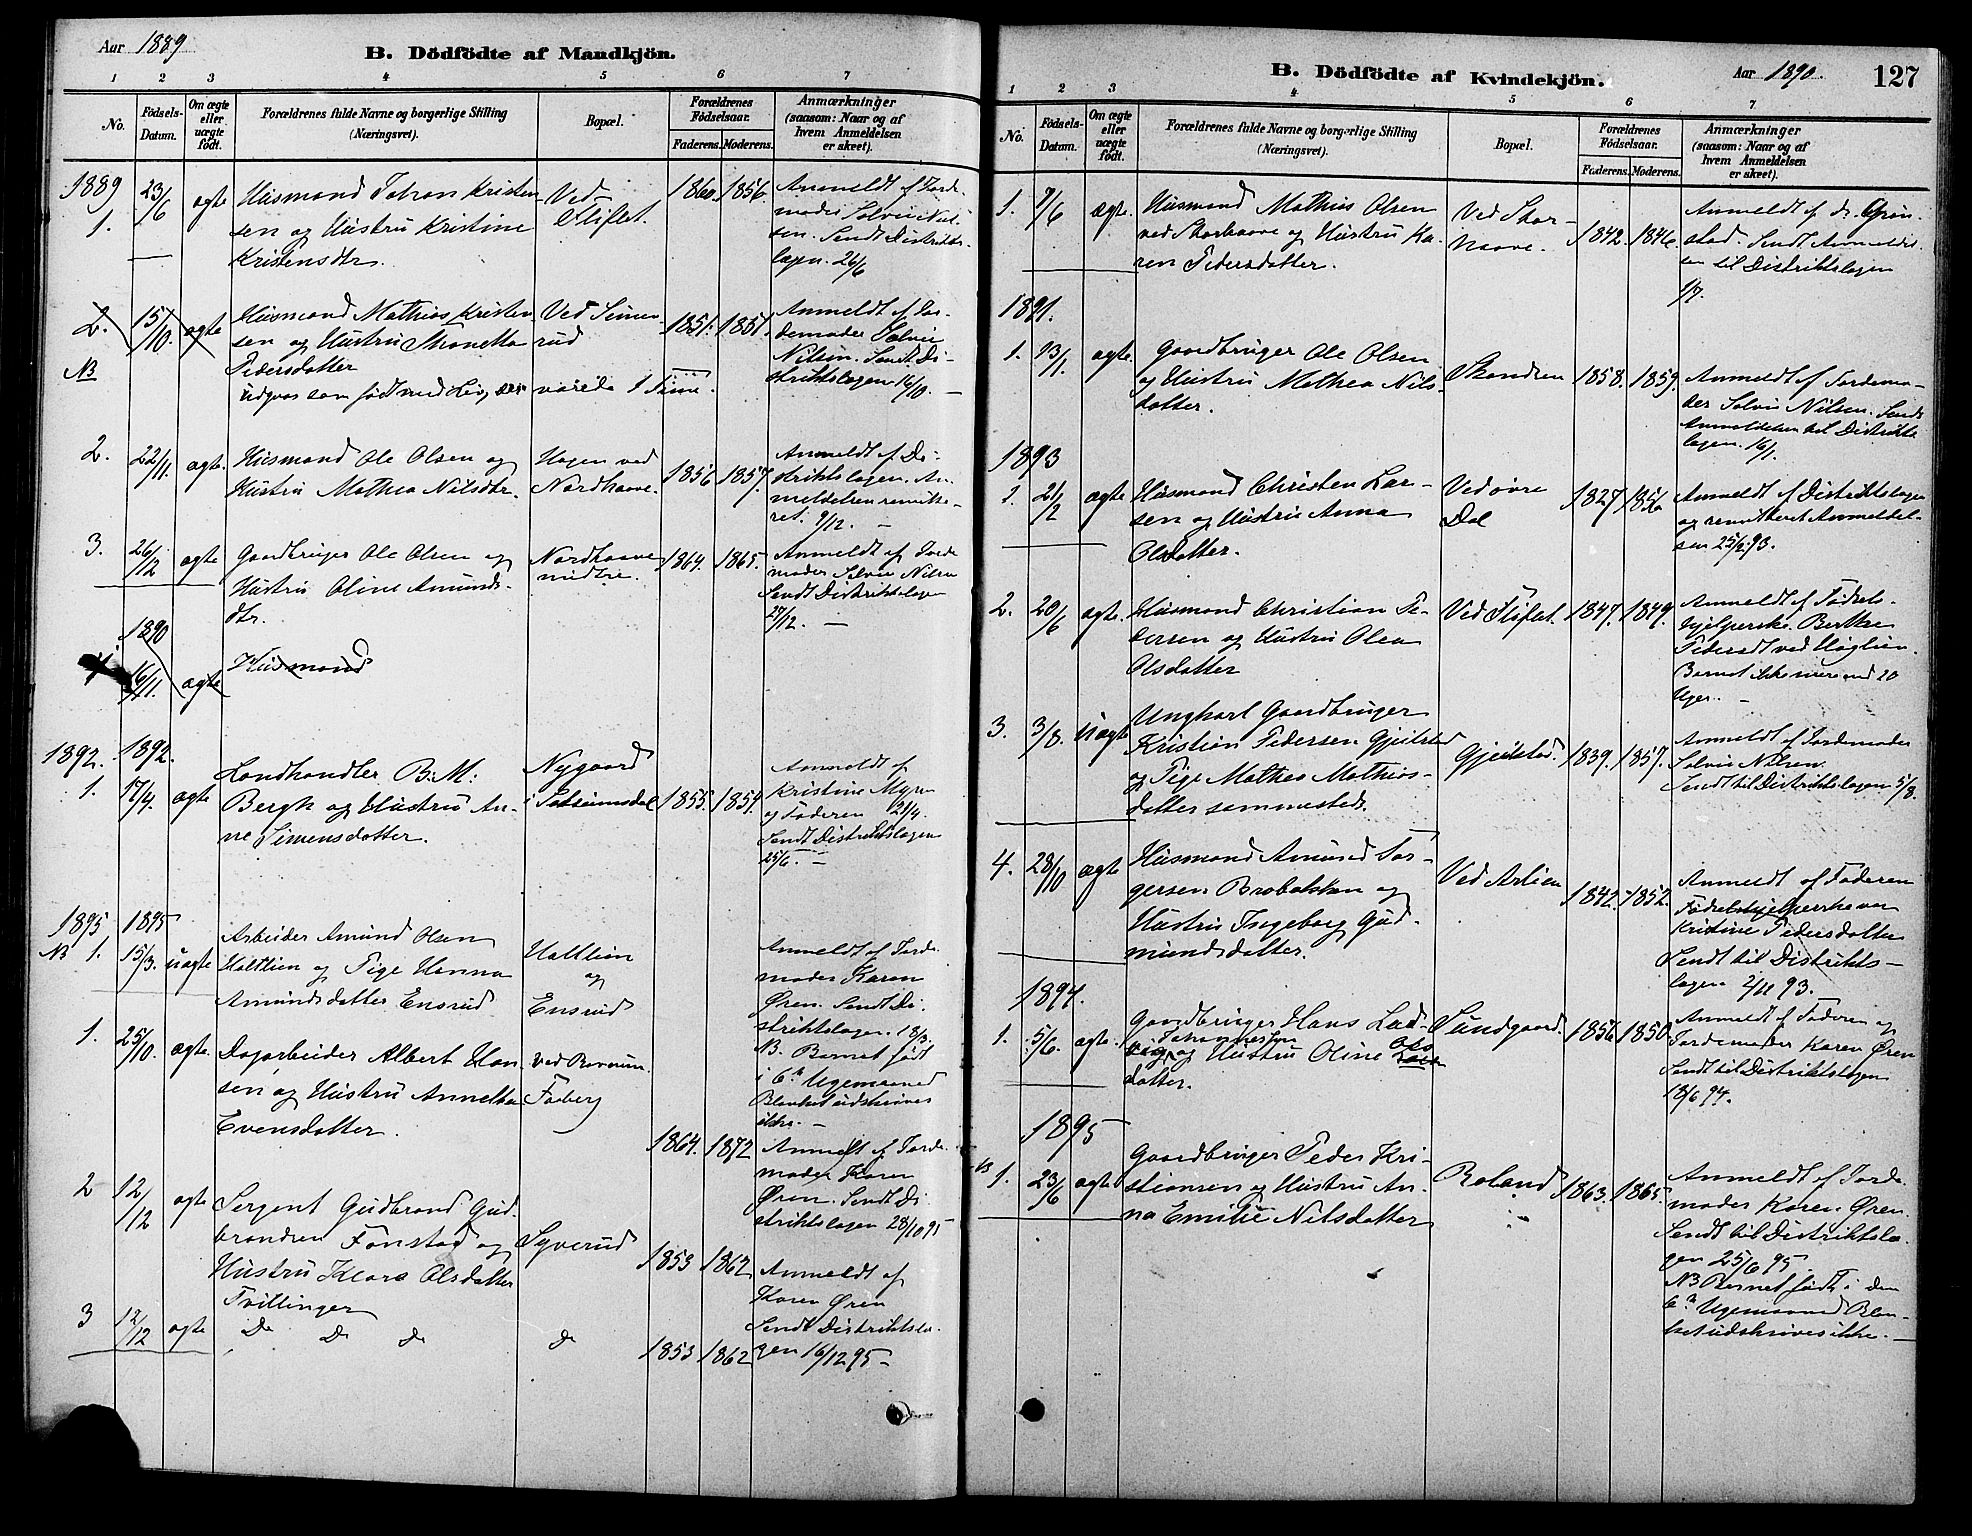 Aar 1889
B. Dödfödte af Mandkjön.
1 2 3 4 5 6 7
No.
Födsels-
Datum.
Om ægte
eller
uægte
født.
Forældrenes fulde Navne og borgerlige Stilling
(Næringsvei).
Bopæl.
Forældrenes
Födselsaar.
Faderens. Moderens.
Anmærkninger
(saasom: Naar og af
hvem Anmeldelsen
er skeet).
1889
1.
23/6
ægte
Husmand Johan Kristen-
sen og Hustru Kristine
Kristensdtr.
Ved
Fliflet.
1860. 1856.
Anmeldt af Jorde-
moder Solvei Nil-
sen. Sendt Distrikts-
lægen. 26/6
2.
NB
15/10.
ægte
Husmand Mathias Kristen-
sen og Hustru Thonette
Pedersdatter
Ved Simen-
rud
1851. 1851.
Anmeldt af Jor-
demoder Solvei
Nilsen. Sendt Di-
striktslægen 16/10.
udgaar som født med Liv,
2.
22/11.
ægte.
Husmand Ole Olsen og
Hustru Mathea Nilsdtr.
Hagen ved
Nordhaave.
1856 1857.
Anmeldt af Di-
striktslægen. An-
meldelsen remitte-
ret. 9/12.
3.
26/12
ægte
Gaardbruger Ole Olsen og
Hustru Oline Amunds-
dtr.
Nordhaave
midtre.
1864. 1865.
Anmeldt af Jorde
moder Solvei Nilsen
Sendt Distriktslægen
27/12.
1890
16/11.
ægte
Husmand
1892. 1892.
1. 17/4.
ægte
Landhandler B. M.
Bergh og Hustru An-
ne Simensdatter.
Nygaard
i Saksumsdal
1855. 1854.
Anmeldt af
Kristine Myre
og Faderen 21/4.
Sendt Distriktslægen
25/6.
1895 1895
NB 1. 15/3. uægte
Arbeider Amund Olsen
Holtlien og Pige Hanna
Amundsdatter Ensrud
Holtlien
og
Ensrud
Anmeldt af Jorde-
moder Karen
Øren. Sendt Di-
striktslægen. 18/3.
NB. Barnet født
i 6te Ugemaaned
Blanket udskrives
ikke.
1. 25/10. ægte.
Dagarbeider Albert Han-
sen og Hustru Annette
Evensdatter.
ved Roverum
Faaberg
1864. 1872
Anmeldt af Jorde-
moder Karen
Øren. Sendt Di-
striktslægen 28/10 95
2 12/12 ægte
Sergent Gudbrand Gud-
brandsen Fonstad og
Hustru Klara Olsdatter
Tvillinger
Syverud
1853 1862
Anmeldt af
Karen Øren
Sendt Distriktslæ-
gen 16/12 95
3 12/12 ægte
Do Do do do
1853 1862
B. Dödfödte af Kvindekjön.
Aar 1890.
127
1 2 3 4 5 6 7
No.
Födsels-
Datum.
Om ægte
eller
uægte
födt.
Forældrenes fulde Navne og borgerlige Stilling
(Næringsvei).
Bopæl.
Forældrenes
Födselsaar.
Faderens. Moderens.
Anmærkninger
(saasom: Naar og af
hvem Anmeldelsen
er skeet).
1. 9/6 ægte.
Husmand Mathias Olsen
ved Storhaave og Hustru Ka-
ren Pedersdatter.
Ved Stor-
haave.
1842. 1846.
Anmeldt af dr. Grøn-
stad. Sendt Anmeldel-
sen til Distriktslægen
1/7.
1891.
1. 13/1. ægte.
Gaardbruger Ole Olsen
og Hustru Mathea Nils-
datter.
Skandsen
1858. 1859.
Anmeldt af Jordemo-
der Solvei Nilsen. Sendt
Anmeldelsen til Distrikts
lægen. 16/1.
1893
1. 2/2 ægte
Husmand Christen Lar-
sen og Hustru Anna
Olsdatter.
Ved øvre
Dal
1827 1856
Anmeldt af Distriktslægen
og remitteret Anmeldel-
sen 25/2 93.
2. 20/6 ægte.
Husmand Christian Pe-
dersen og Hustru Olea
Olsdatter
Ved Fliflet.
1847. 1849.
Anmeldt af Fødsels-
hjelperske Berthe
Pedersdt ved Høglien.
Barnet ikke mere end 20
Uger.
3. 3/8. uægte
Ungkarl Gaardbruger
Kristian Pedersen Gjeilstad
og Pige Mathea Mathias-
datter sammesteds.
Gjeilstad.
1839. 1857.
Anmeldt af Jordemoder
Solvei Nilsen.
Sendt til Distriktslægen 5/8.
4. 28/10 ægte
Husmand Amund Tor-
gersen Brobakken og
Hustru Ingeborg Gud-
mundsdatter.
Ved Aulien
1842. 1852.
Anmeldt af Faderen
Fødselshjelpersken
Kristine Pedersdatter
Sendt til Distrikts-
lægen 2/11 93.
1894.
1. 5/6. ægte.
Gaardbruger Hans Lud-
vig Johannesen og Hustru Oline Ols
datter.
Sundgaard.
1856 1850
Anmeldt af Faderen og
Jordemoder Karen Øren
Sendt til Distriktslægen
18/6 94.
1895
NB 1. 23/6 ægte
Gaardbruger Peder Kri-
stiansen og Hustru An-
na Emilie Nilsdatter
Roland
1863. 1865.
Anmeldt af Jorde-
moder Karen Øren.
Sendt til Distriktslæ-
gen 25/6 95.
NB Barnet født i den
6te Ugemaaned Blan-
ket udskrives ikke.